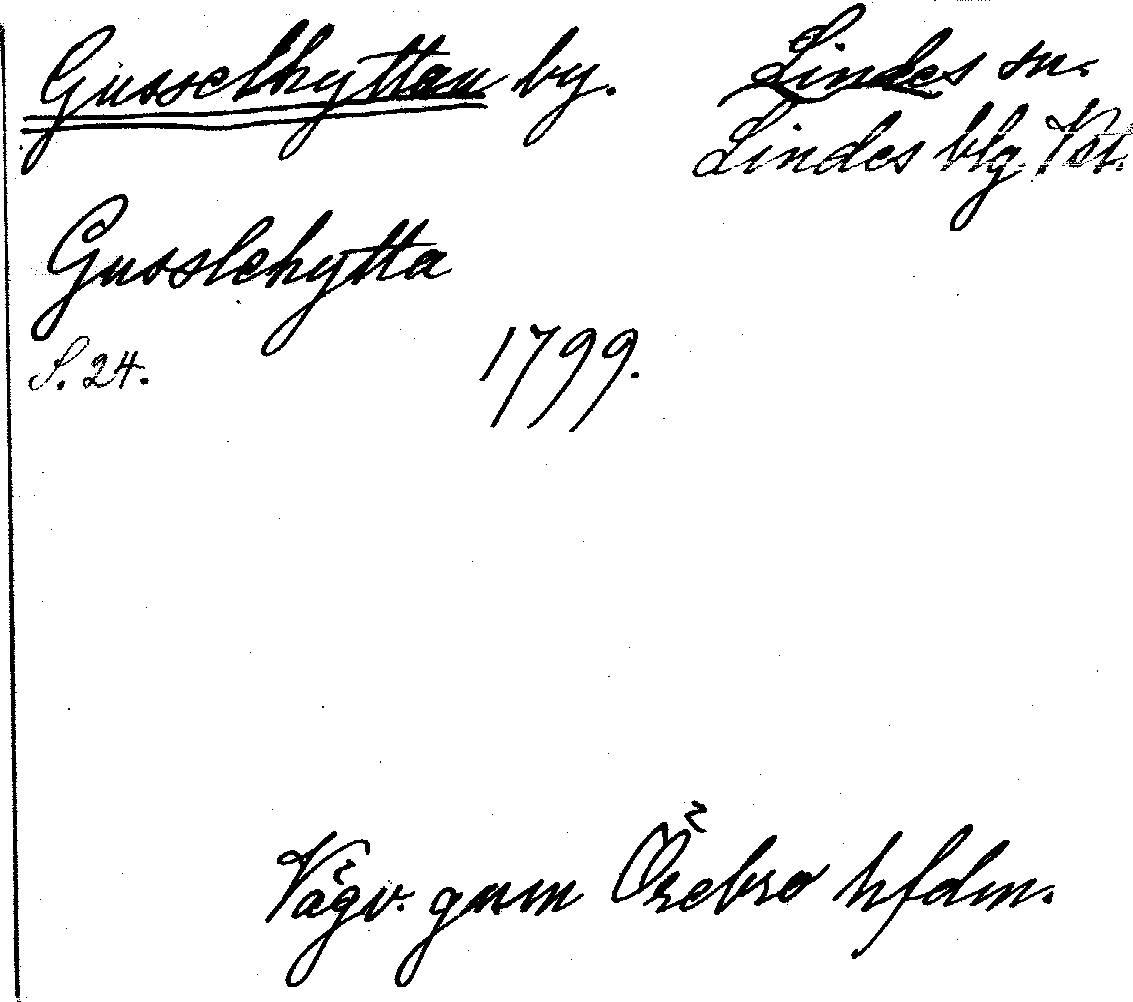 Gusselhyttan by. Lindes sn.
Lindes blg Vst.
Gusslehytta
S. 24. 1799.
Vägv. gnm Örebro hfdm.